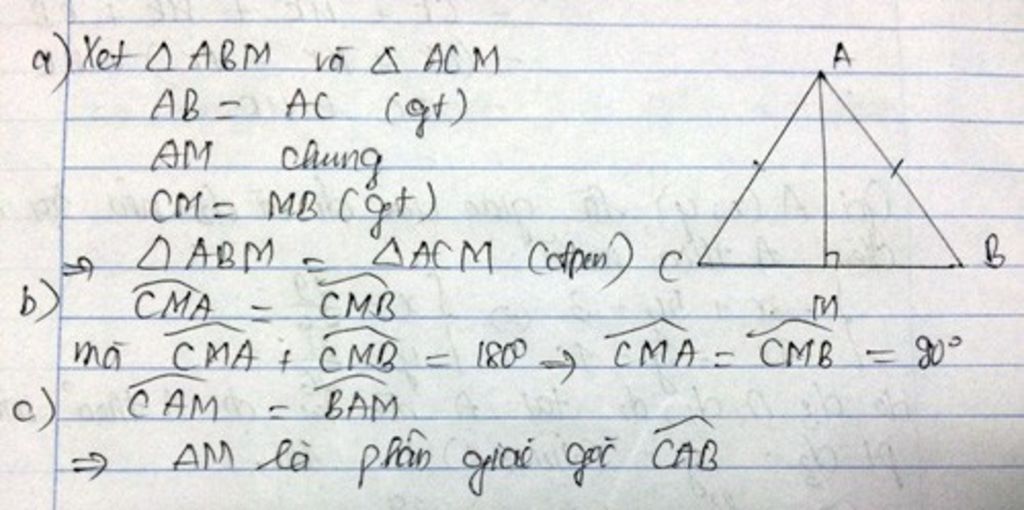 a) Xet △ ABM và △ ACM
AB = AC (gt)
AM chung
CM = MB (gt)
⇒ △ ABM = △ ACM
A
C
B
M
b) \widehat{CMA} = \widehat{CMB}
mà \widehat{CMA} + \widehat{CMB} = 180° ⇒ \widehat{CMA} = \widehat{CMB} = 90°
c) \widehat{CAM} = \widehat{BAM}
⇒ AM là phân giác góc \widehat{CAB}